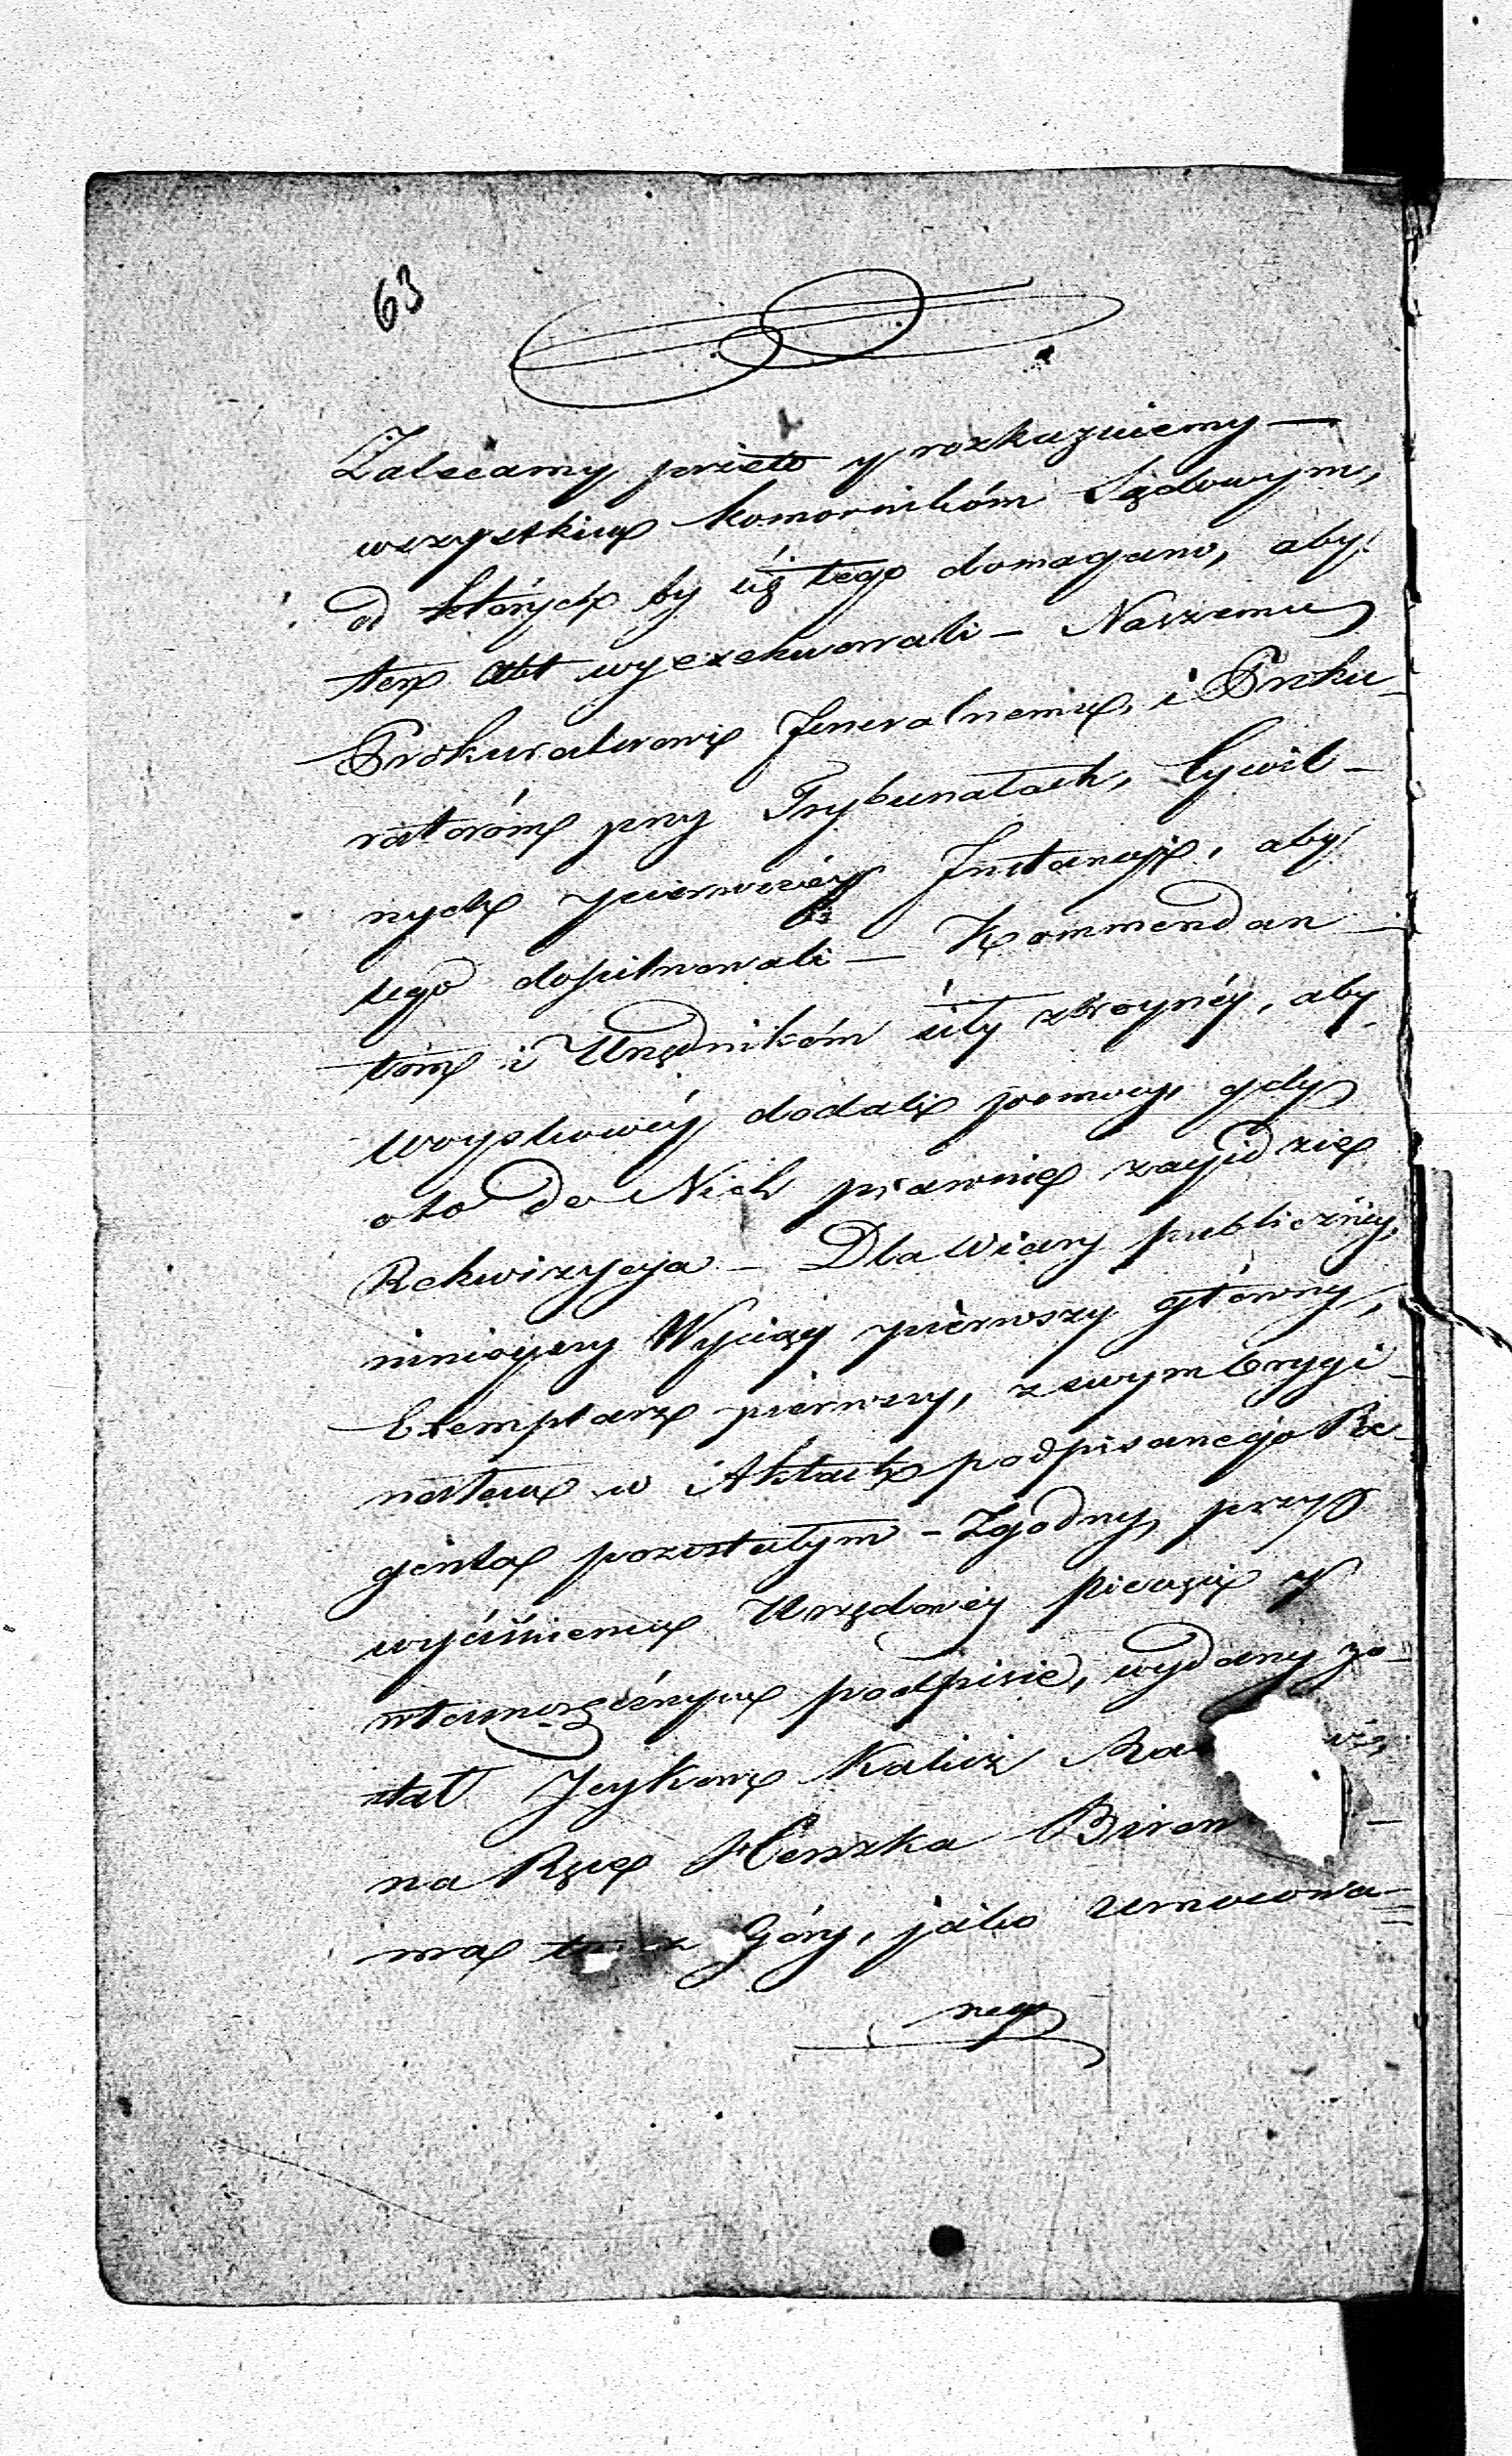 63
Zalecamy przeto y rozkazuiemy —
wszystkim Komornikóm Sądowym,
od których by się tego domagano, aby
ten Akt wyexekwowali — Naszemu
Prokuratorowi Jeneralnemu, i Proku-
ratoróm przy Trybunałach, Cywil-
nych pierwszéy Instancji, aby
tego dopilnowali — Kommendan-
tóm i Urzędnikóm siły zbroynéy, aby
woyskowéy dodali pomocy, gdy
oto do Nich prawnie zayidzie
Rekwizycya — Dla Wiary publicznéy,
ninieyszy Wyciąg pierwszy główny,
Exemplarz pierwszy, z swym Orygi-
nałem w Aktach podpisanego Re-
genta pozostałym — Zgodny, przy
wyciśnieniu Urzędowéy pieczęci y
własnoręcznym podpisie, wydany zo-
stał Kalisz
na Ręce Herszka Biren
z Góry, jako umocowa-
nego